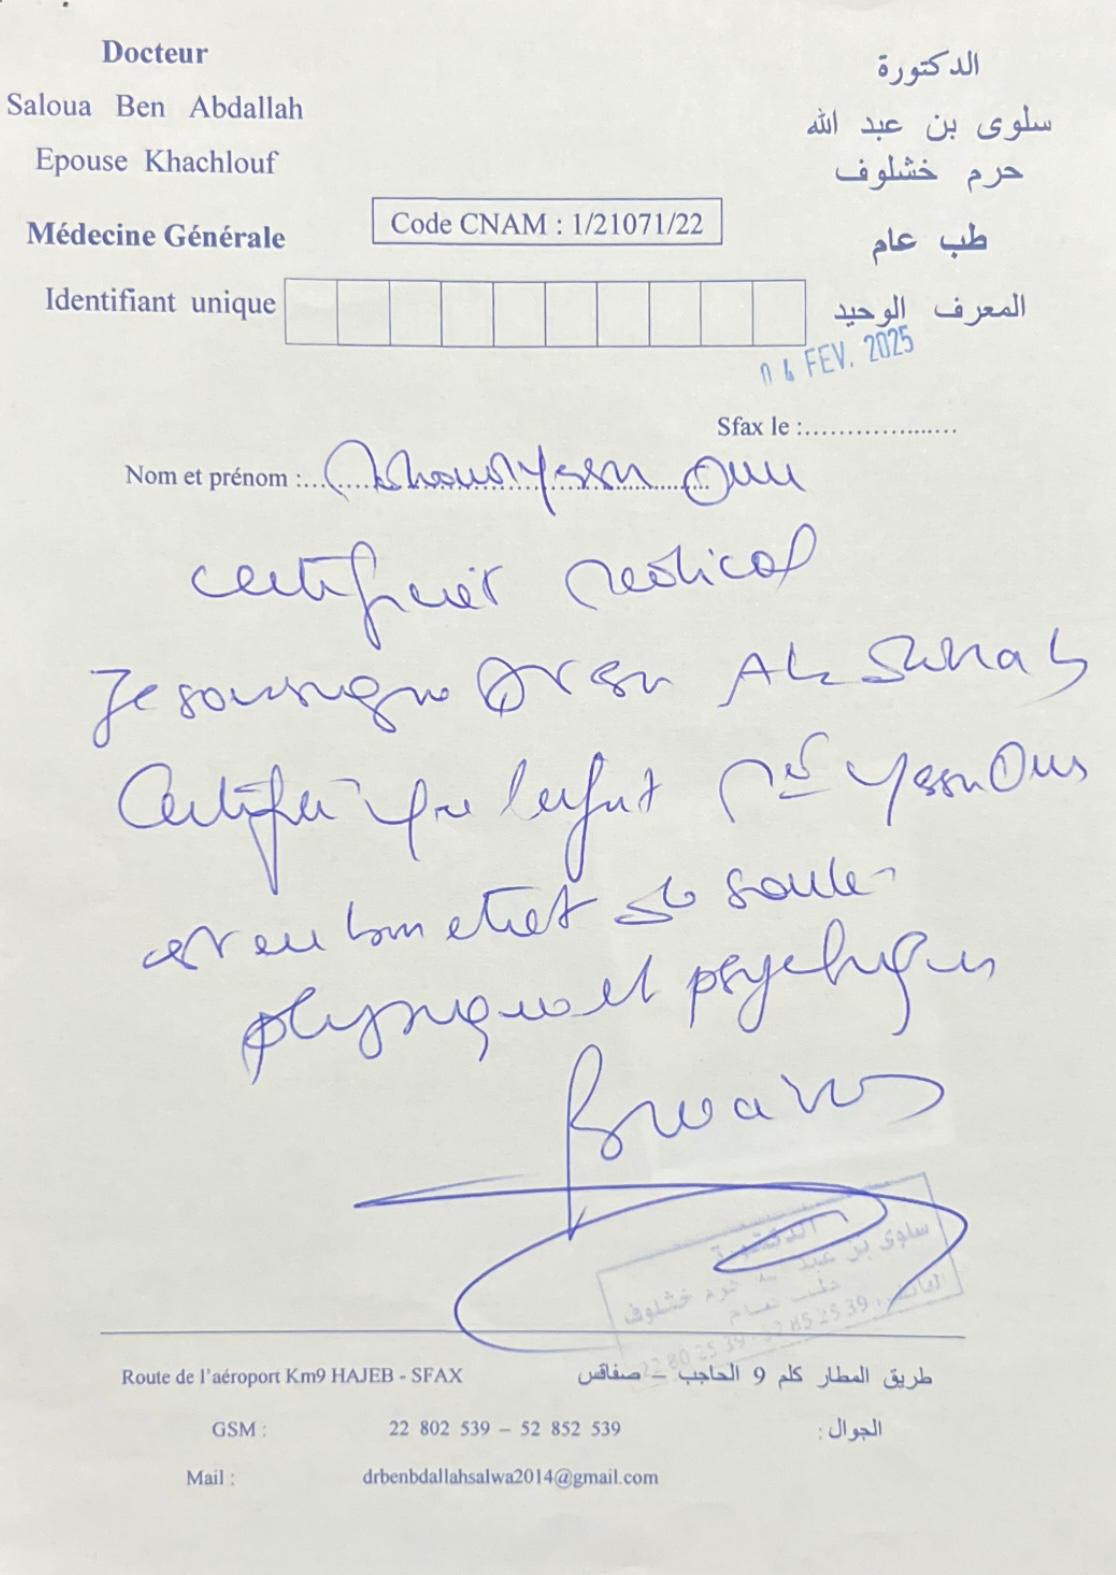 Docteur
Saloua Ben Abdallah
Epouse Khachlouf
Médecine Générale
Identifiant unique
الدكتورة
سلوى بن عبد الله
حرم خشلوف
طب عام
المعرف الوحيد
Code CNAM : 1/21071/22
04 FEV. 2025
Sfax le :
Nom et prénom :
certificat médical
Je soussigné Dr Ben
Certifie que l'enfant Med Yssin
est en bon etat de santé
physique et psychique
الدكتورة
سلوى بن عبد الله حرم خشلوف
طب عام
الهاتف: 52 85 25 39
22 80 25 39
Route de l'aéroport Km9 HAJEB - SFAX
طريق المطار كلم 9 الحاجب – صفاقس
GSM : 22 802 539 – 52 852 539 الجوال :
Mail : drbenbdallahsalwa2014@gmail.com